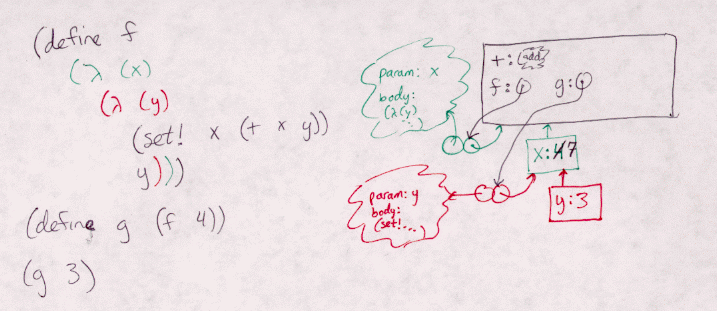 (define f
(λ (x)
(λ (y)
(set! x (+ x y))
y)))
(define g (f 4))
(g 3)
param: x
body:
(λ(y)
...)
+: (add)
f: g:
x: 4 7
y: 3
param: y
body:
(set!...)